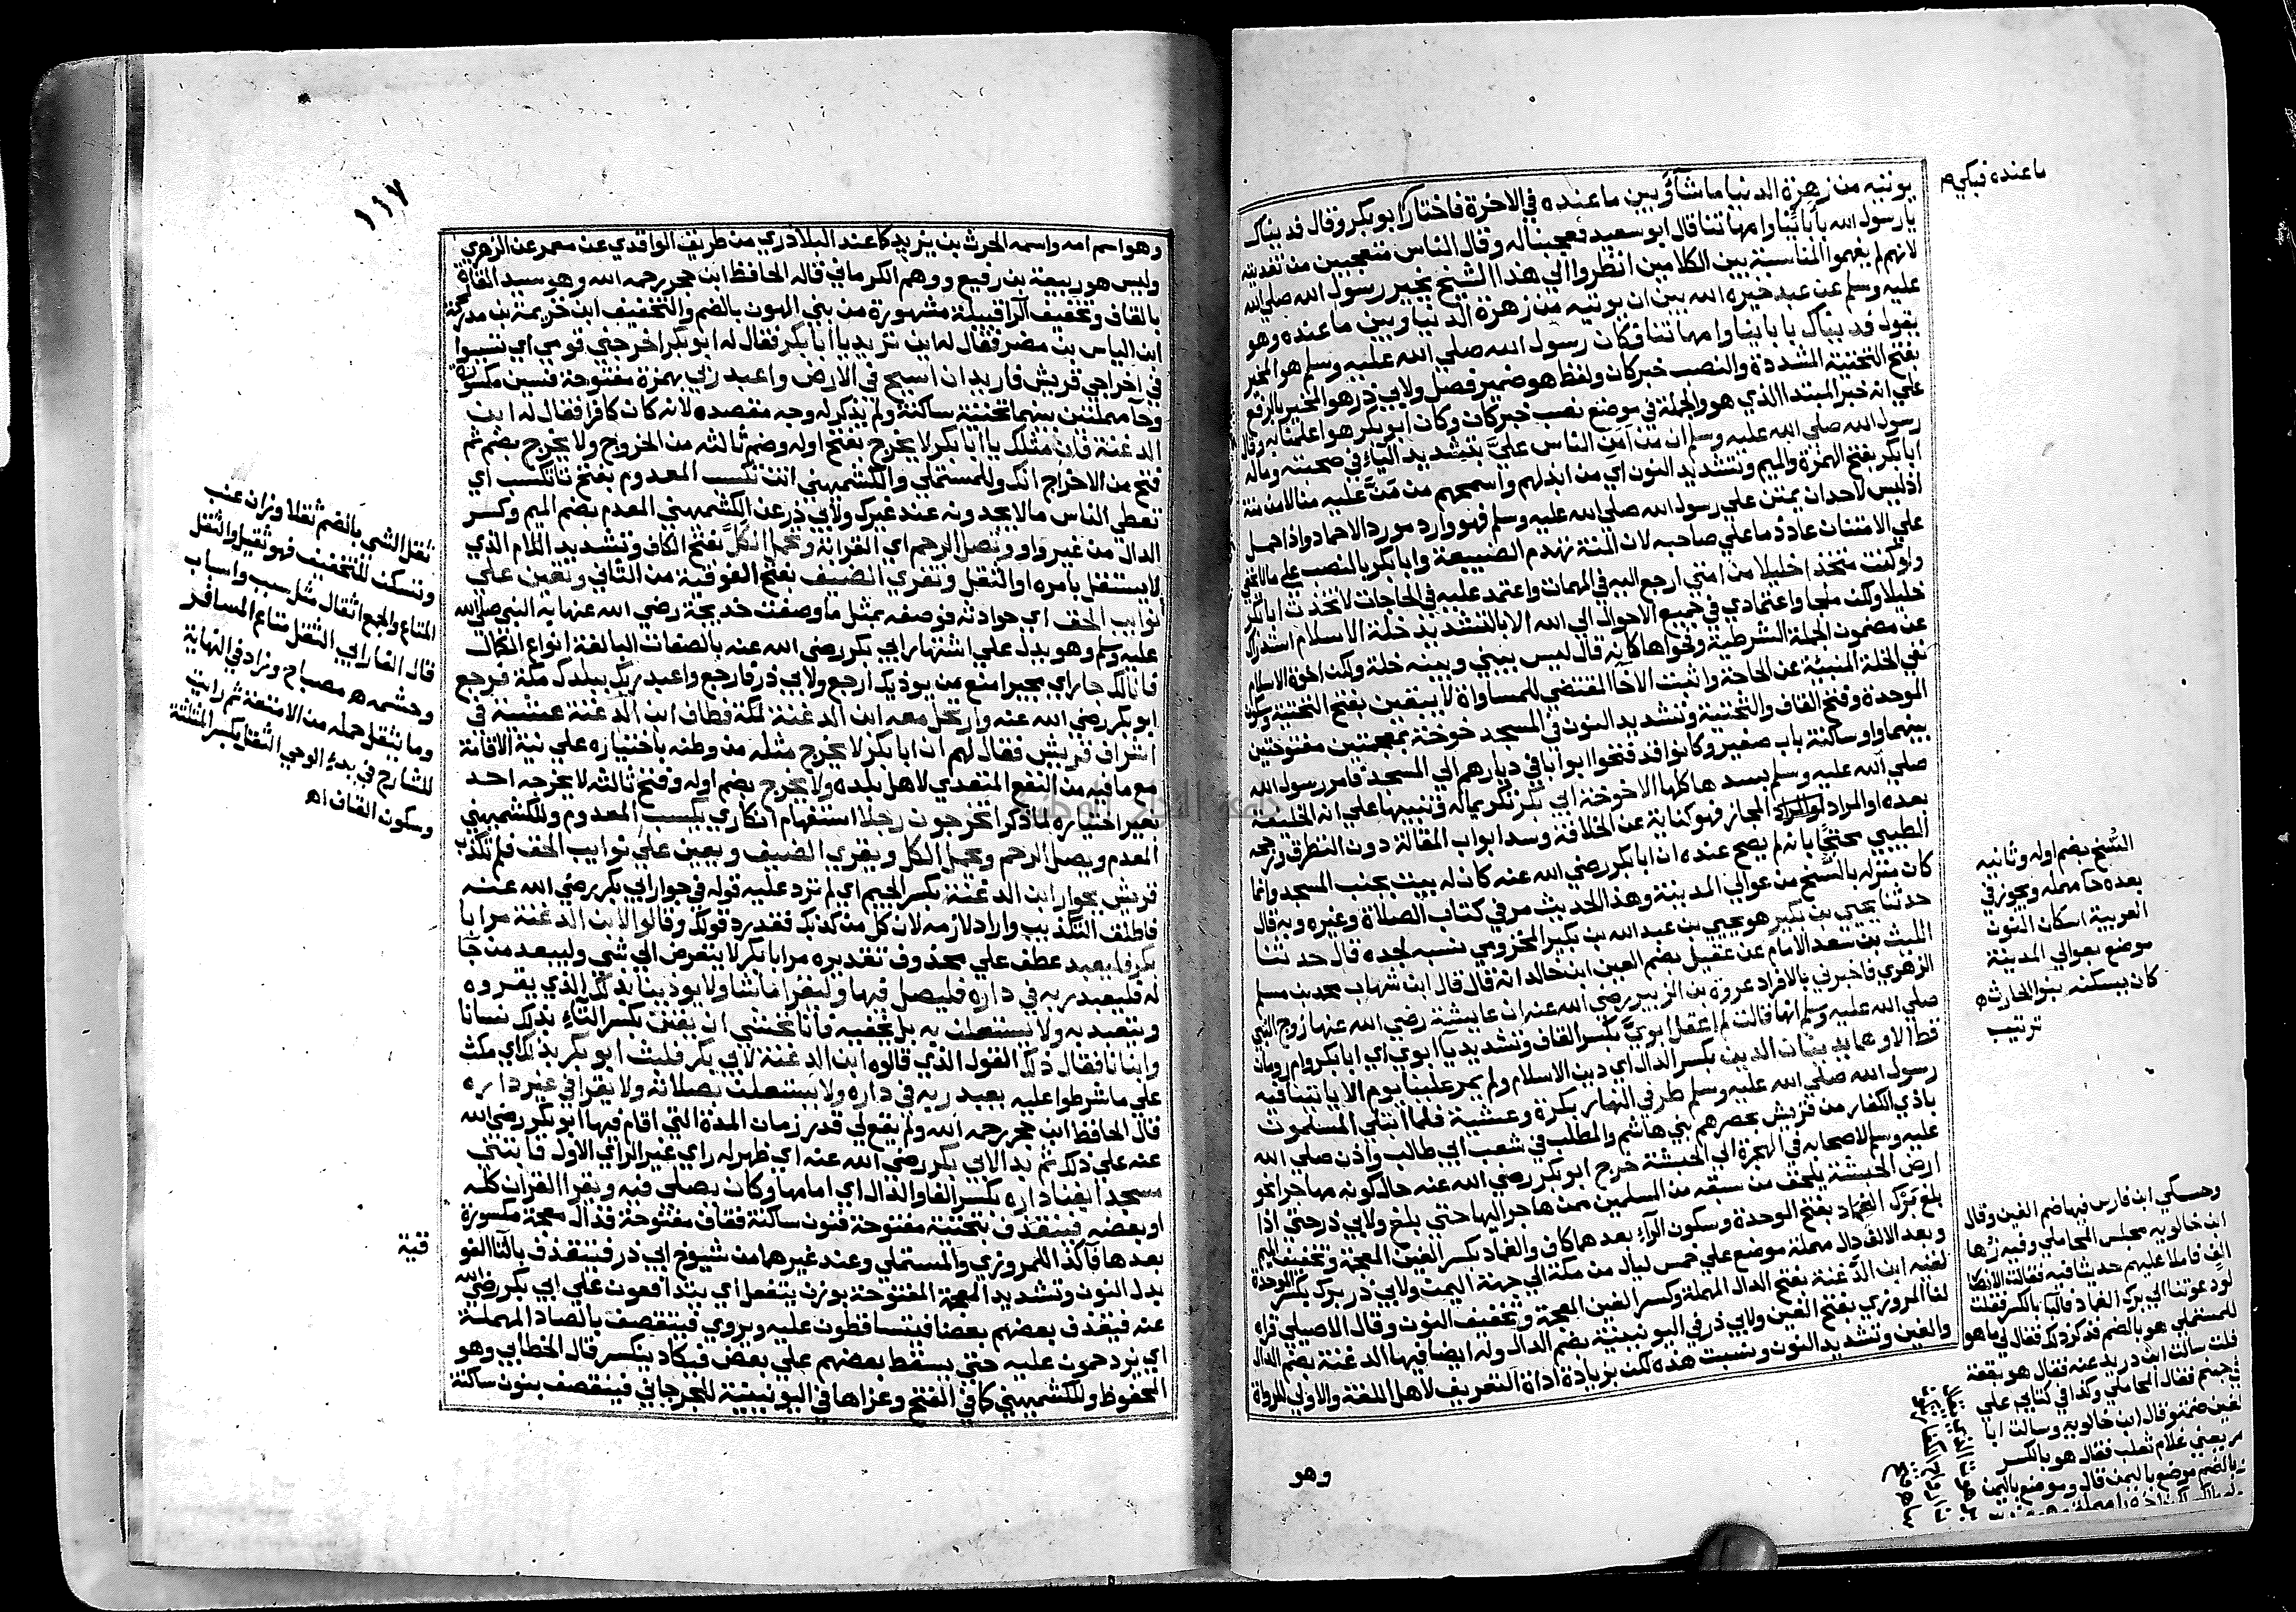 يوتيه من زهرة الدنيا ما شآ وبين ما عنده في الاخرة فاختار ابو بكر وقال فديناك
يا رسول الله بابائنا وامهاتنا قال ابو سعيد فعجبنا له وقال الناس متعجبين من تفديته
لانهم لم يفهموا المناسبة بين الكلامين انظروا الي هذا الشيخ يخبر رسول الله صلي الله
عليه وسلم عن عبد خيره الله بين ان يوتيه من زهرة الدنيا وبين ما عنده وهو
يقول فديناك بابائنا وامهاتنا فكان رسول الله صلي الله عليه وسلم هو المخير
بفتح التحتية المشددة والنصب خبر كان ولفظ هو ضمير فصل ولابي ذر هو المخير بالرفع
علي انه خبر المبتدا الذي هو والجملة في موضع نصب خبر كان وكان ابو بكر هو اعلمنا به وقال
رسول الله صلي الله عليه وسلم ان من امن الناس علي بتشديد الياء في صحبته وماله
ابا بكر بفتح الهمزة والميم وتشديد النون اي من ابذلهم واسمحهم من من عليه منا لا من منة
اذ ليس لاحد ان يمتن علي رسول الله صلي الله عليه وسلم فهو وارد مورد الاحماد واذا حمل
علي الامتنان عاد ذما علي صاحبه لان المنة تهدم الصنيعة وابا بكر بالنصب علي ما لا يخفي
ولو كنت متخذا خليلا من امتي ارجع اليه في المهمات واعتمد عليه في الحاجات لاتخذت ابا بكر
خليلا ولكن ملجا واعتمادي في جميع الاحوال الي الله الا بالتشديد خلة الاسلام استدراك
عن مضمون الجملة الشرطية وفحواها كانه قال ليس بيني وبينه خلة ولكن اخوة الاسلام
نفي الخلة المنبئة عن الحاجة واثبت الاخا المقتضي للمساواة لا يبقين بفتح التحتية وسكون
الموحدة وفتح القاف والتحتية وتشديد النون في المسجد خوخة بمعجمتين مفتوحتين
بينهما واو ساكنة باب صغير وكانوا قد فتحوا ابوابا في ديارهم الي المسجد فامر رسول الله
صلي الله عليه وسلم بسدها كلها الا خوخة ابي بكر تكريما له وتنبيها علي انه الخليفة
بعده او المراد المجاز فهو كناية عن الخلافة وسد ابواب المقالة دون التطرق ورجحه
الطيبي محتجا بانه لم يصح عنده ان ابا بكر رضي الله عنه كان له بيت بجنب المسجد وانما
كان منزله بالسنح من عوالي المدينة وهذا الحديث مر في كتاب الصلاة وغيره وبه قال
حدثنا يحيي بن بكير هو يحيي بن عبد الله بن بكير المخزومي نسبه لجده قال حدثنا
الليث بن سعد الامام عن عقيل بضم العين ابن خالد انه قال قال ابن شهاب محمد بن مسلم
الزهري فاخبرني بالافراد عروة بن الزبير رضي الله عنه ان عايشة رضي الله عنها زوج النبي
صلي الله عليه وسلم انها قالت لم اعقل ابوي بكسر القاف وتشديد يا ابوي اي ابا بكر وام رومان
قط الا وهما يدينان الدين بكسر الدال اي دين الاسلام ولم يمر علينا يوم الا ياتينا فيه
رسول الله صلي الله عليه وسلم طرفي النهار بكرة وعشية فلما ابتلي المسلمون
باذي الكفار من قريش بحصرهم بني هاشم والمطلب في شعب ابي طالب واذن صلي الله
عليه وسلم لاصحابه في الهجرة الي الحبشة خرج ابو بكر رضي الله عنه حال كونه مهاجرا نحو
ارض الحبشة يلحق من سبقه من المسلمين ممن هاجر اليها حتي بلغ ولابي ذر حتي اذا
بلغ برك الغماد بفتح الموحدة وسكون الراء بعدها كاف والغماد بكسر الغين المعجمة وتخفيف الميم
وبعد الالف دال مهملة موضع علي خمس ليال من مكة الي جهة اليمن ولابي ذر برك بكسر الموحدة
لقيه ابن الدغنة بفتح الدال المهملة وكسر الغين المعجمة وتخفيف النون وقال الاصيلي قراه
لنا المروزي بفتح الغين ولابي ذر في اليونينية بضم الدال وله ايضا فيها الدغنة بضم الدال
والغين وتشديد النون ونسبت هذه لكن بزيادة اداة التعريف لاهل اللغة والاولي للرواة
وهو
ما عنده فبكي
السنح بضم اوله وثانيه
بعده حا مهملة ويجوز في
العربية اسكان النون
موضع بعوالي المدينة
كان يسكنه بنو الحارث
ترتيب
وحكي ابن فارس فيها ضم الغين وقال
ابن خالويه مجلس المحاملي وفيه زها
الف فاملا عليهم حديثا فيه فقالت الانصار
لو دعوتنا الي برك الغماد قالها بالكسر فقلت
للمستملي هو بالضم فذكر ذلك فقال لي ما هو
قلت سالت ابن دريد عنه فقال هو بقعة
في جهنم فقال المحاملي وكذا في كتابي علي
الغين ضمة قال ابن خالويه وسالت ابا
عمر يعني غلام ثعلب فقال هو بالكسر
وبالضم موضع باليمن قال وموضع باليمن
١١٧
وهو اسم امه واسمه الحرث بن يزيد كما عند البلاذري من طريق الواقدي عن معمر عن الزهري
وليس هو ربيعة بن رفيع ووهم الكرماني قاله الحافظ ابن حجر رحمه الله وهو سيد القارة
بالقاف وتخفيف الرا قبيلة مشهورة من بني الهون بالضم والتخفيف ابن خزيمة بن مدركة
ابن الياس بن مضر فقال له اين تريد يا ابا بكر فقال له ابو بكر اخرجني قومي اي تسببوا
في اخراجي قريش فاريد ان اسيح في الارض واعبد ربي بهمزة مفتوحة فسين مكسورة
وحا مهملتين بينهما تحتية ساكنة ولم يذكر له وجه مقصده لانه كان كافرا فقال له ابن
الدغنة فان مثلك يا ابا بكر لا يخرج بفتح اوله وضم ثالثه من الخروج ولا يخرج بضم ثم
فتح من الاخراج انك وللمستملي والكشميهني انت تكسب المعدوم بفتح تا تكسب اي
تعطي الناس ما لا يجدونه عند غيرك ولابي ذر عن الكشميهني المعدم بضم الميم وكسر
الدال من غير واو وتصل الرحم اي القرابة وتحمل الكل بفتح الكاف وتشديد اللام الذي
لا يستقل بامره او الثقل وتقري الضيف بفتح الفوقية من الثاني وتعين علي
نوايب الحق اي حوادثه فوصفه بمثل ما وصفت خديجة رضي الله عنها به النبي صلي الله
عليه وسلم وهو يدل علي اشتهار ابي بكر رضي الله عنه بالصفات البالغة انواع الكمال
فانا لك جار اي مجير امنع من يوذيك ارجع ولابي ذر فارجع واعبد ربك ببلدك مكة فرجع
ابو بكر رضي الله عنه وارتحل معه ابن الدغنة لمكة فطاف ابن الدغنة عشية في
اشراف قريش فقال لهم ان ابا بكر لا يخرج مثله من وطنه باختياره علي نية الاقامة
مع ما فيه من النفع المتعدي لاهل بلده ولا يخرج بضم اوله وفتح ثالثه لا يخرجه احد
بغير اختياره لما ذكر اتخرجون رجلا استفهام انكاري يكسب المعدوم وللكشميهني
المعدم ويصل الرحم ويحمل الكل ويقري الضيف ويعين علي نوايب الحق فلم تكذب
قريش بجوار ابن الدغنة بكسر الجيم اي لم ترد عليه قوله في جوار ابي بكر رضي الله عنه
فاطلق التكذيب واراد لازمه لان كل من كذبك فقد رد قولك وقالوا لابن الدغنة مر ابا
بكر فليعبد عطف علي محذوف تقديره مر ابا بكر لا يتعرض الي شي وليبعد من جا
له فليعبد ربه في داره فليصل فيها وليقرا ما شا ولا يوذينا بذلك الذي يقروه
ويتعبد به ولا يستعلن به بل يخفيه فانا نخشي ان يفتن بكسر التاء بذلك نسانا
وابنانا فقال ذلك القول الذي قالوه ابن الدغنة لابي بكر فلبث ابو بكر بذلك اي مكث
علي ما شرطوا عليه يعبد ربه في داره ولا يستعلن بصلاته ولا يقرا في غير داره
قال الحافظ ابن حجر رحمه الله ولم يقع لي قدر زمان المدة التي اقام فيها ابو بكر رضي الله
عنه علي ذلك ثم بدا لابي بكر رضي الله عنه اي ظهر له راي غير الراي الاول فابتني
مسجدا بفنا داره بكسر الفا والدال اي امامها وكان يصلي فيه ويقرا القران كله
او بعضه فينقذف بتحتية مفتوحة فنون ساكنة فقاف مفتوحة فذال معجمة مكسورة
بعدها فا كذا للمروزي والمستملي وعند غيرهما من شيوخ ابي ذر فيتقذف بالتا الفو
بدل النون وتشديد المعجمة المفتوحة بوزن يتفعل اي يتدافعون علي ابي بكر رضي الله
عنه فيقذف بعضهم بعضا فيتساقطون عليه ويروي فيتقصف بالصاد المهملة
اي يزدحمون عليه حتي يسقط بعضهم علي بعض فيكاد ينكسر قال الخطابي وهو
المحفوظ وللكشميهني كما في الفتح وعزاها في اليونينية للجرجاني فينقصف بنون ساكنة
ثقل الشي بالضم ثقلا وزان عنب
وتسكن للتخفيف فهو ثقيل والثقل
المتاع والجمع اثقال مثل سبب واسباب
قال الفارابي الثقل متاع المسافر
وحشمه مصباح وزاد في النهاية
وما يثقل حمله من الامتعة ثم رايت
للشارح في بدء الوحي الثقل بكسر المثلثة
وسكون القاف اه
قية